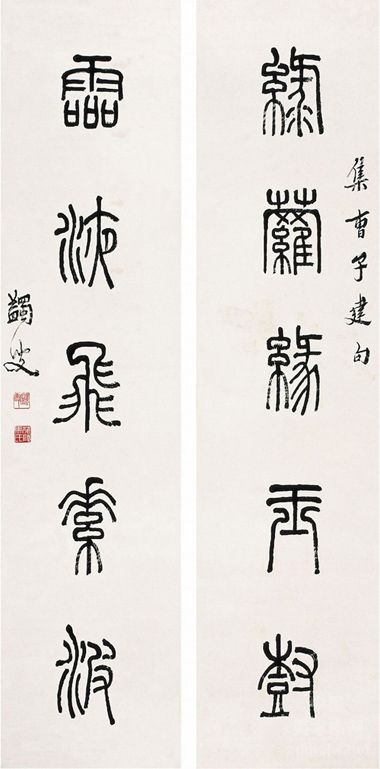 集曹子建句
綠蘿緣玉樹
靈液飛素波
蠲叟